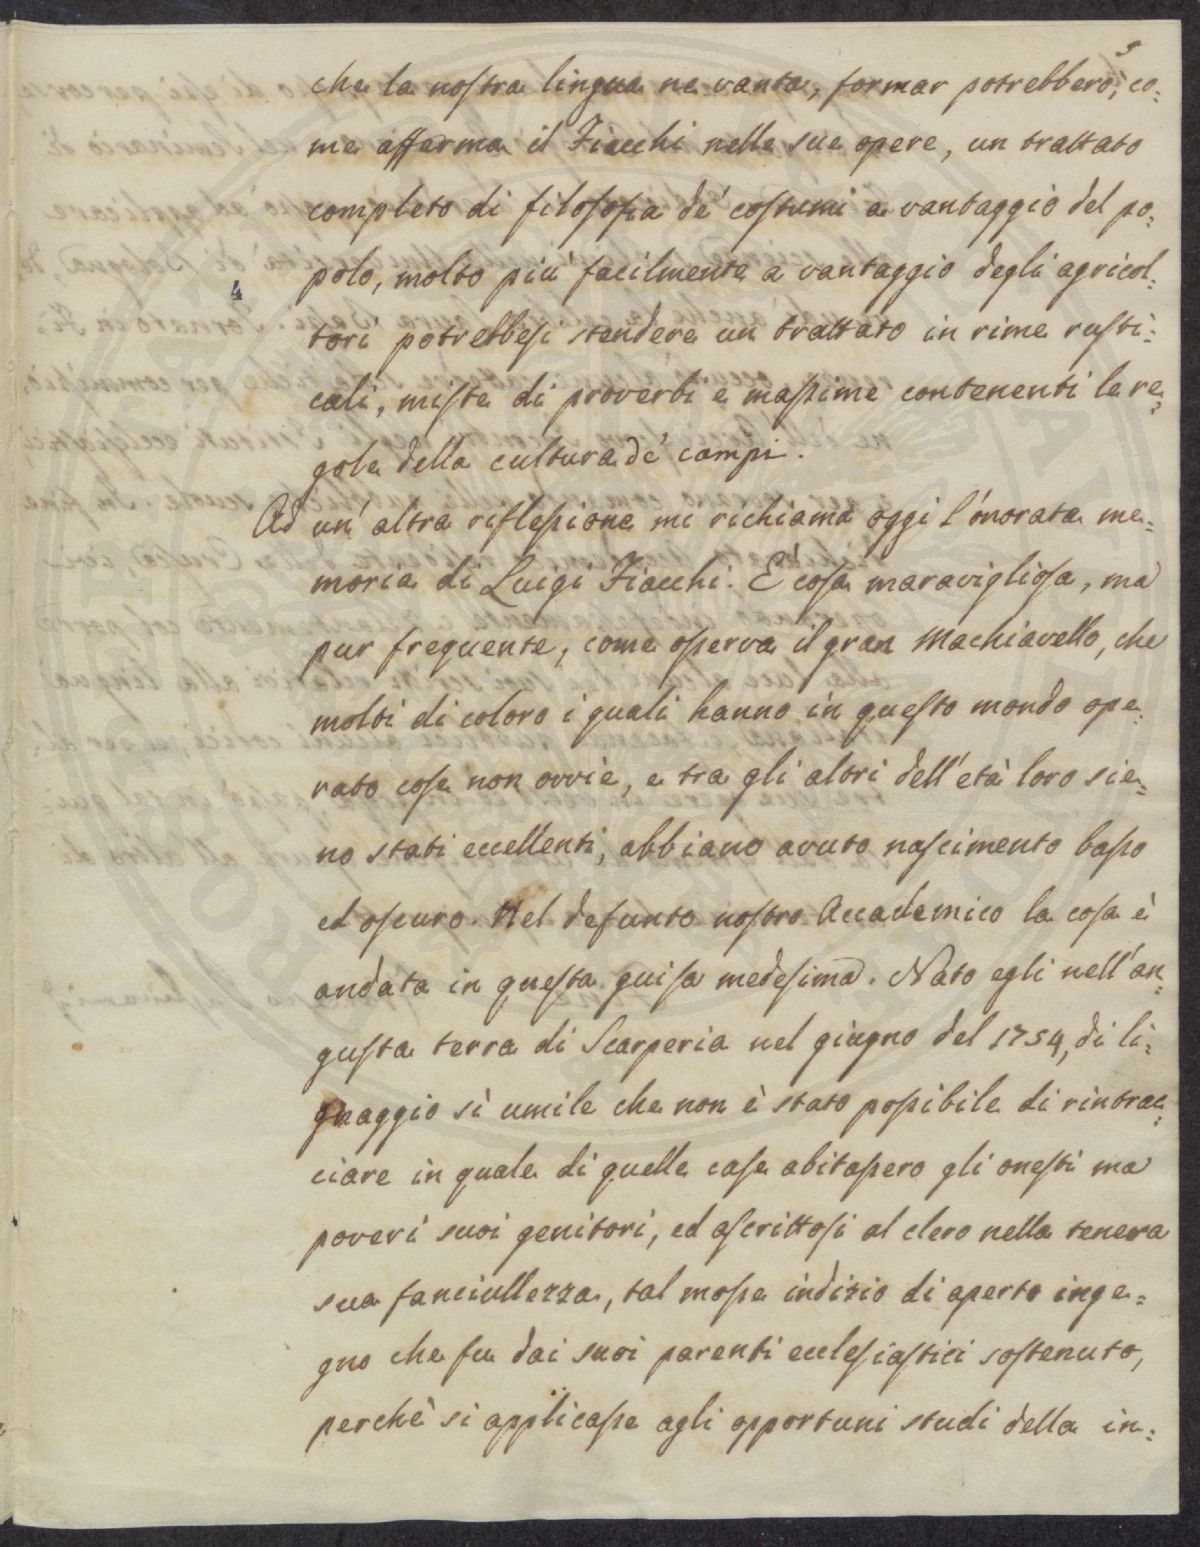 5
che la nostra lingua ne vanta, formar potrebbero, co:
me afferma il Fiacchi nelle sue opere, un trattato
completo di filosofia de' costumi a vantaggio del po:
polo, molto più facilmente a vantaggio degli agricol:
4
tori potrebbesi stendere un trattato in rime rusti:
cali, miste di proverbi e massime contenenti le re:
gole della cultura de' campi.
Ad un' altra riflessione mi richiama oggi l'onorata me:
moria di Luigi Fiacchi. È cosa maravigliosa, ma
pur frequente, come osserva il gran Machiavello, che
molti di coloro i quali hanno in questo mondo ope:
rato cose non ovvie, e tra gli altri dell'età loro sie:
no stati eccellenti, abbiano avuto nascimento basso
ed oscuro. Nel defunto nostro Accademico la cosa è
andata in questa guisa medesima. Nato egli nell'an:
gusta terra di Scarperia nel giugno del 1754, di li:
gnaggio sì umile che non è stato possibile di rintrac:
ciare in quale di quelle case abitassero gli onesti ma
poveri suoi genitori, ed ascrittosi al clero nella tenera
sua fanciullezza, tal mosse indizio di aperto inge:
gno che fu dai suoi parenti ecclesiastici sostenuto,
perchè si applicasse agli opportuni studi della in: